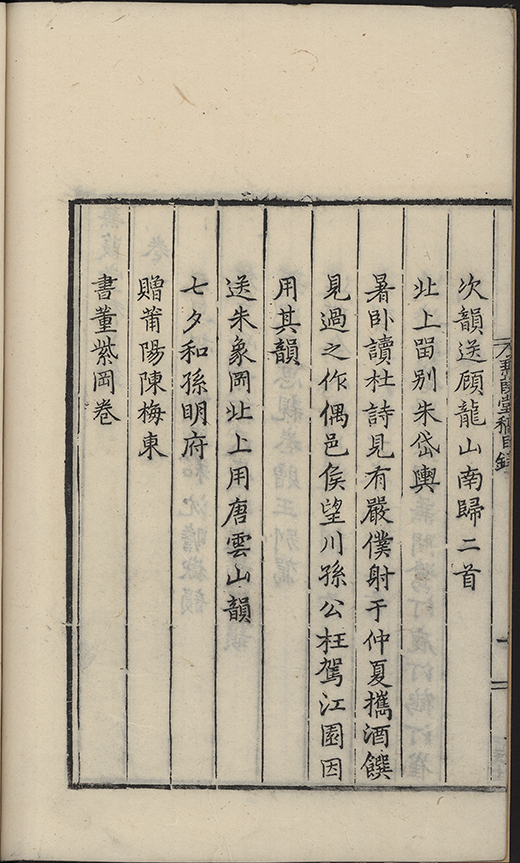 次韻送顧龍山南歸二首
北上畱別朱岱輿
暑卧讀杜詩見有嚴僕射于仲夏攜酒饌
見過之作偶邑矦望川孫公枉駕江園因
用其韻
送朱象岡北上用唐雲山韻
七夕和孫明府
贈莆陽陳梅東
書董紫岡卷